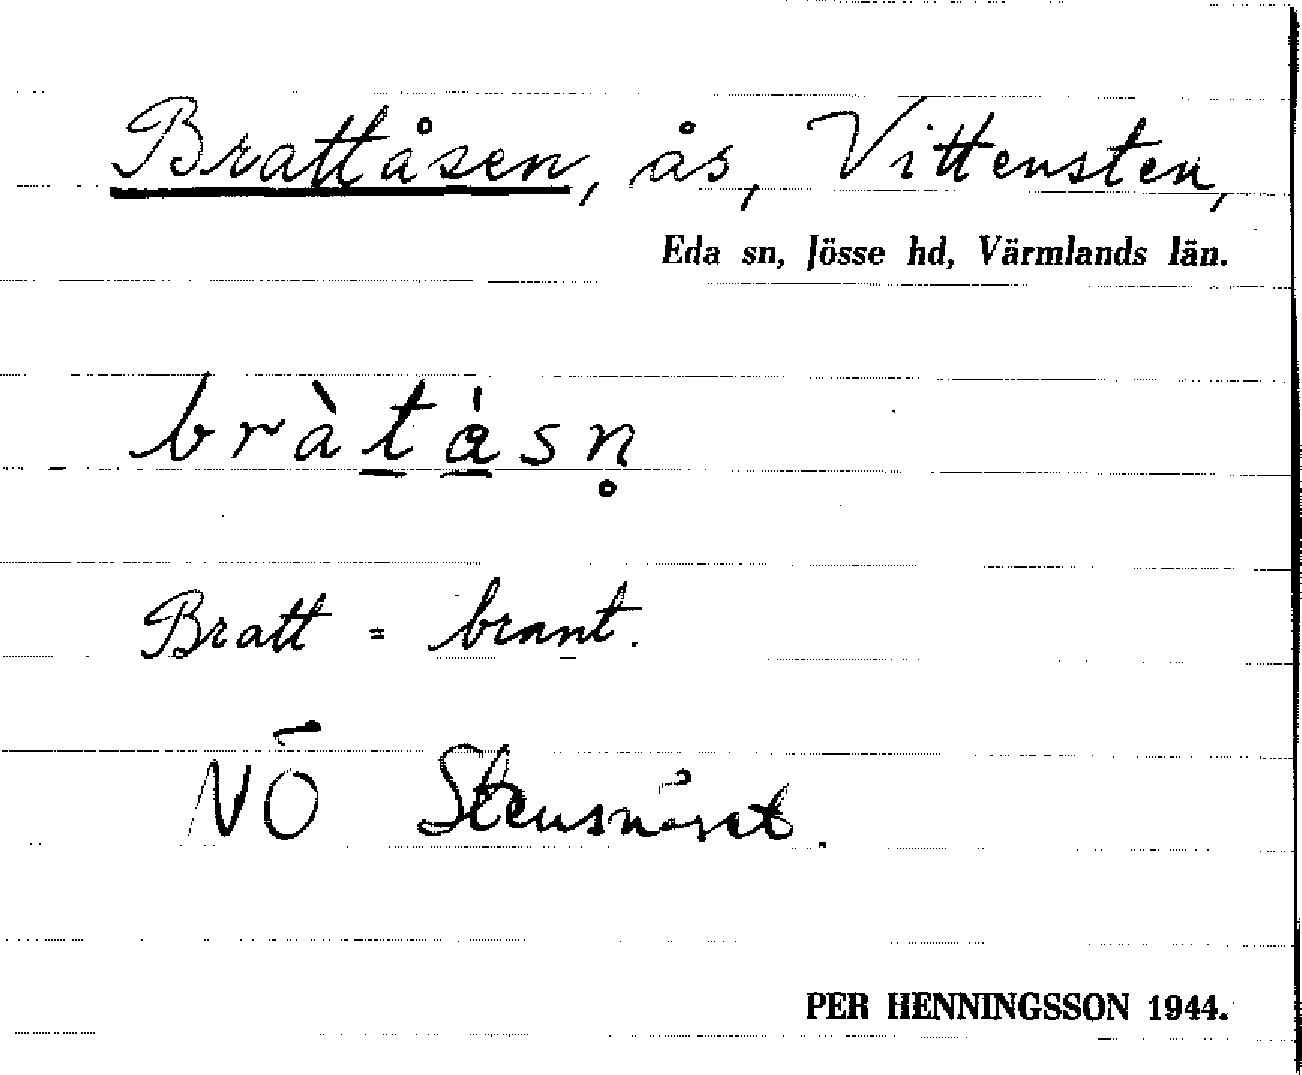 Brattåsen, ås, Vittensten,
Eda sn, Jösse hd, Värmlands län.
bràtåsn̥
Bratt = brant.
NÖ Stensnäset.
PER HENNINGSSON 1944.